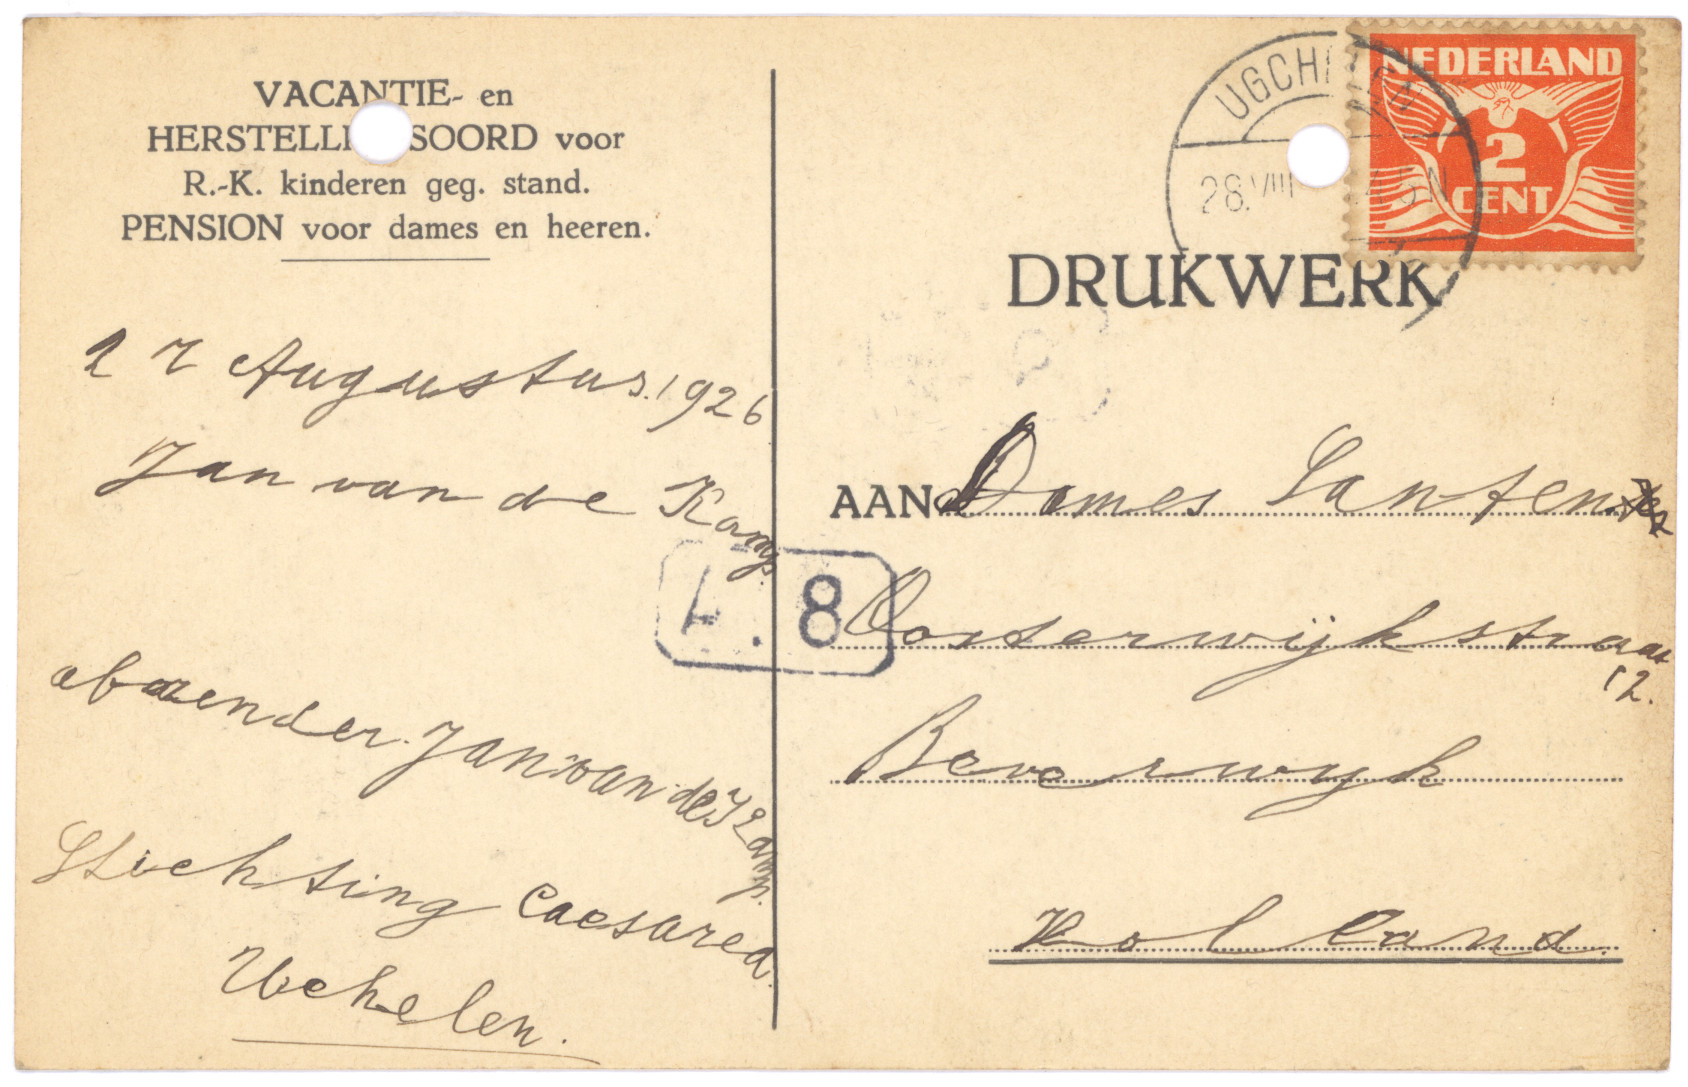 VACANTIE- en
HERSTELLI SOORD voor
R.-K. kinderen geg. stand.
PENSION voor dames en heeren.
27 Augustus. 1926
Jan van de Kamp.
abzender. Jan van de Kamp.
Stichting Caesarea
UGCH
28.VIII 4.5N
NEDERLAND
2
CENT
DRUKWERK
AAN Dames Santen
8
Oosterwijkstraat
12.
Beverwyk
Holland.